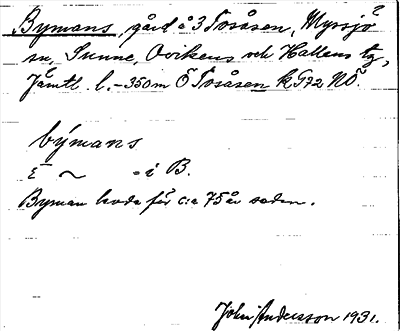 Bymans, gård å 3 Tosåsen, Myssjö
sn, Sunne, Ovikens och Hallens tg,
Jämtl. l. -350m Ö Tosåsen k G72 NÖ.
býmans
ξ ~ - i B.
Byman levde för c:a 75 år sedan.
John Andersson 1931.